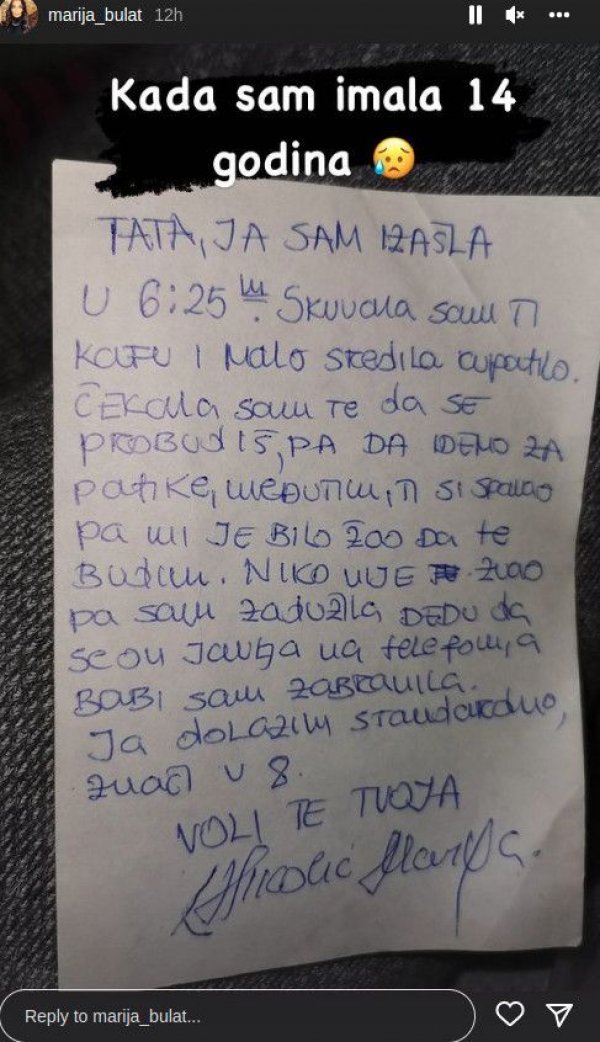 marija_bulat 12h
Kada sam imala 14
godina 😥
TATA, JA SAM IZAŠLA
U 6:25 ... Skuvala sam TI
KAFU I MALO SREDILA cupatilo.
ČEKALA sam TE da SE
PROBUDIŠ, PA DA IDEMO ZA
PATIKE, MEĐUTIM, TI SI SPAVAO
pa mi JE BILO ŽAO DA te
BUDIM. NIKO NIJE ZVAO
pa sam ZADUŽILA DEDU da
SE ON JAVLJA na telefon, a
BABI sam ZABRANILA.
Ja DOLAZIM STANDARDNO,
ZNAČI U 8.
VOLI TE TVOJA
Nikolić Marija.
Reply to marija_bulat...